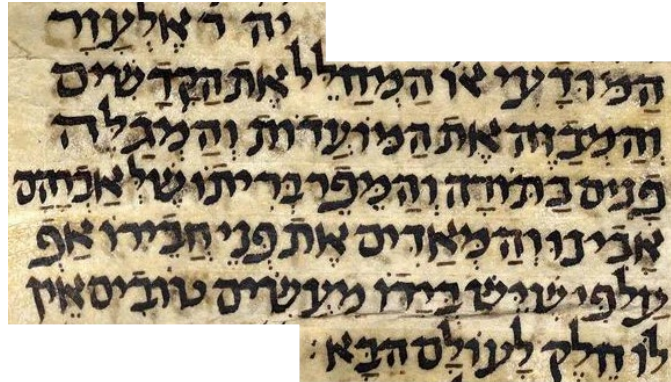 יה ר אלעזר
המודעי או המחלל את הקדשים
והמבזה את המועדות והמגלה
פנים בתורה והמפר בריתו שלאברהם
אבינו והמאדים את פני חבירו אף
עלפי שיש בידו מעשים טובים אין
לו חלק לעולם הבא :